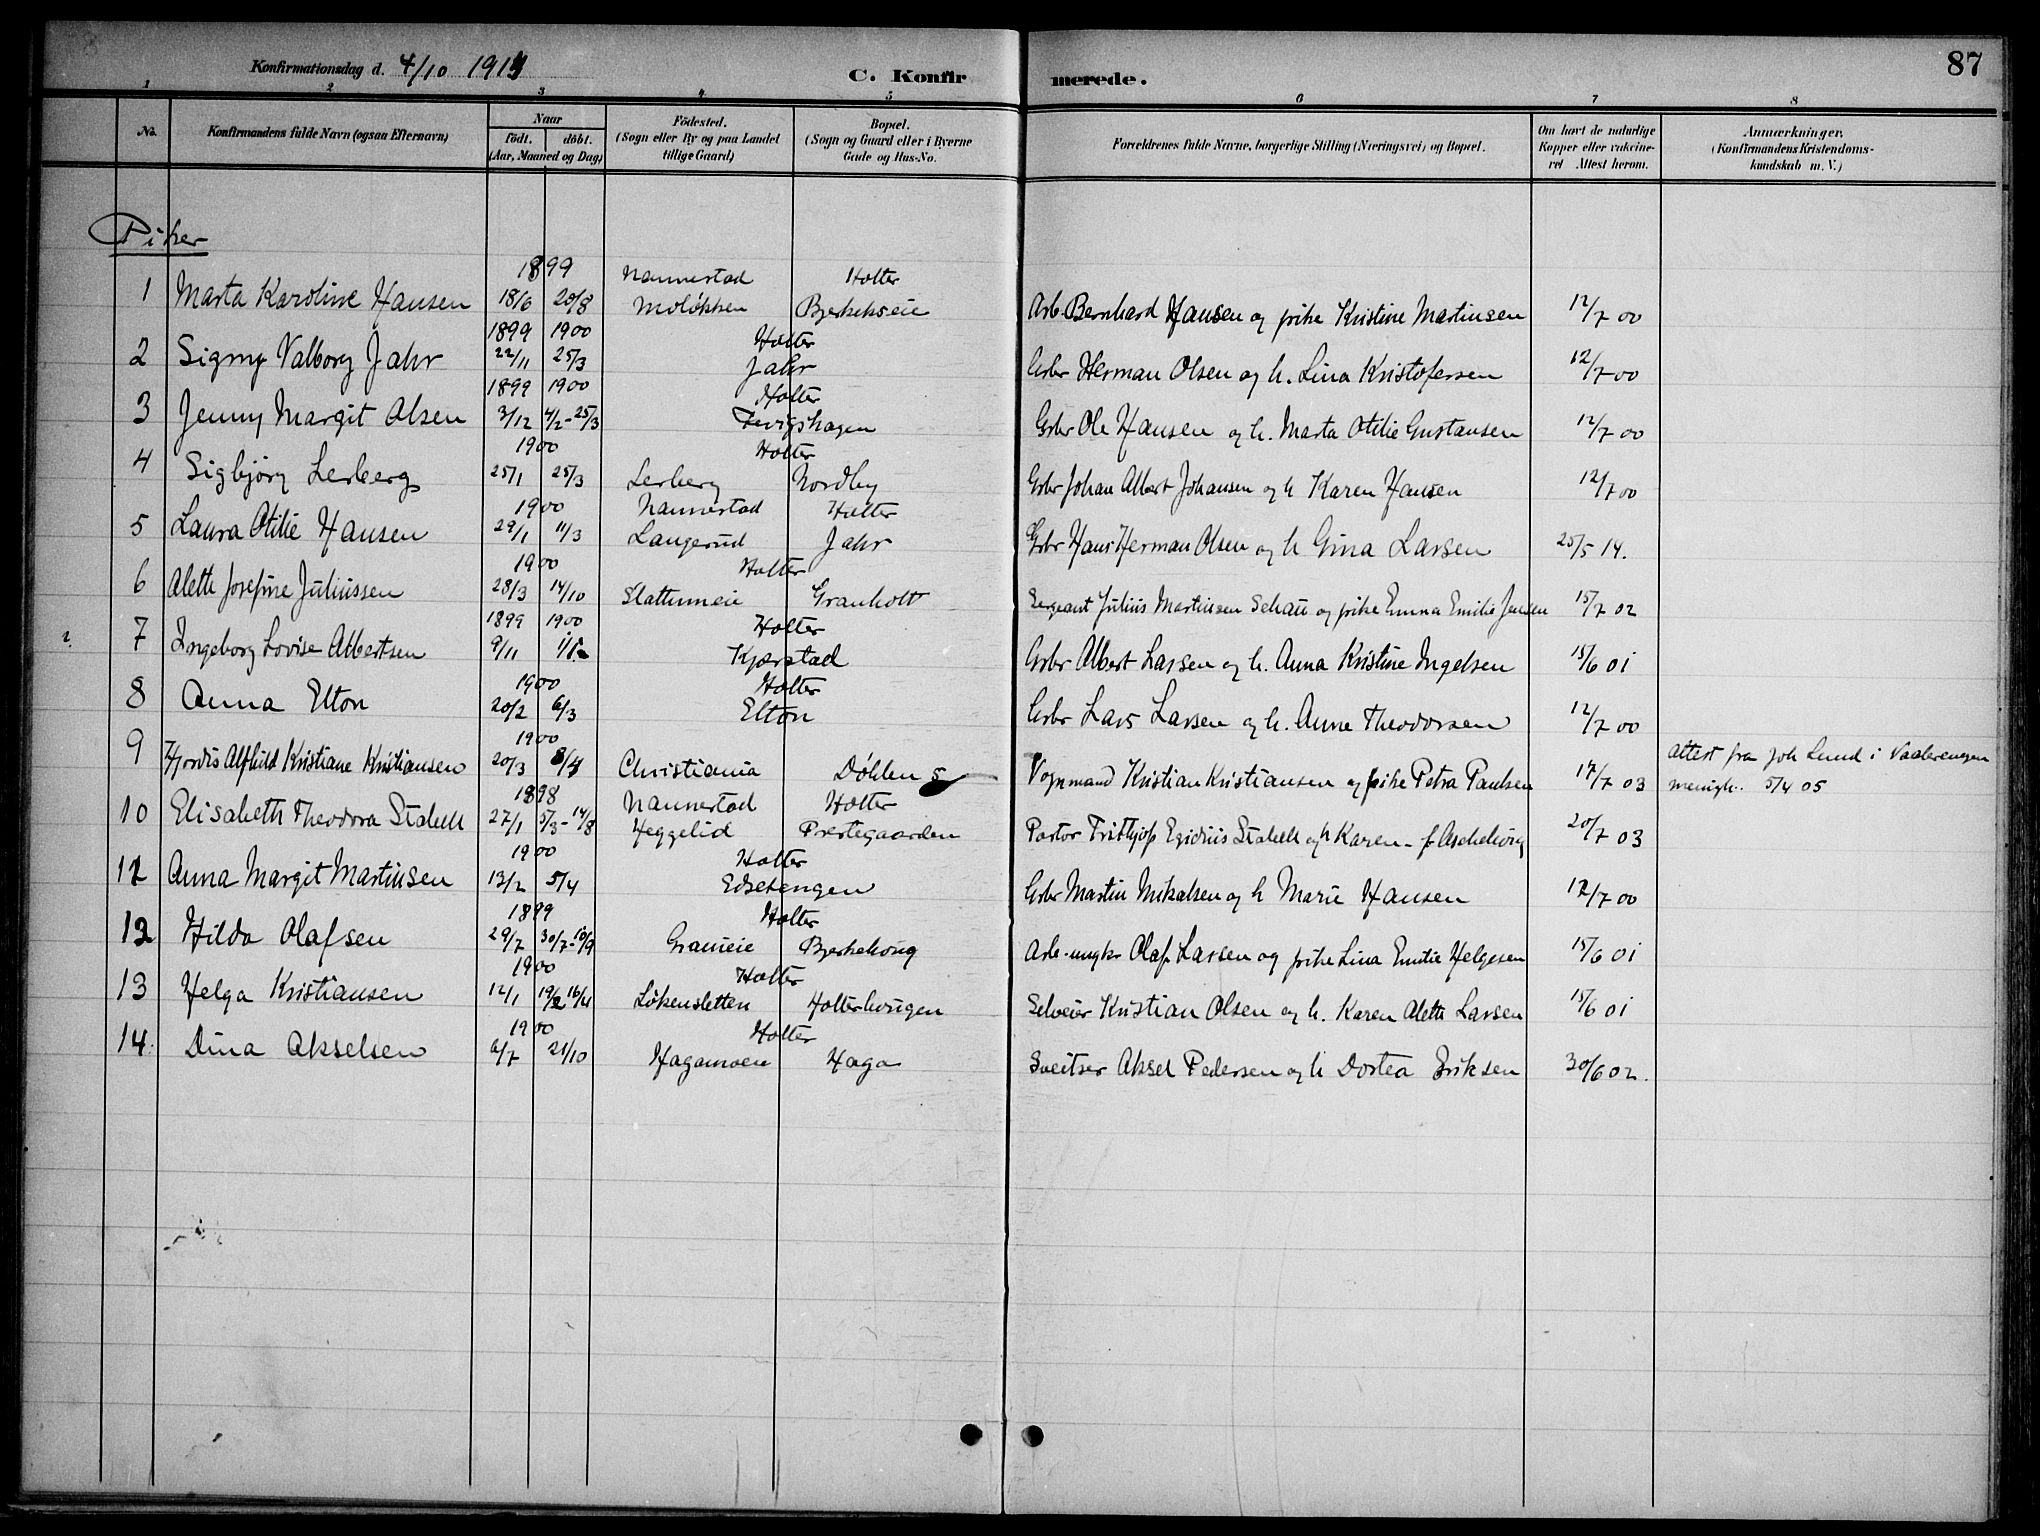 Konfirmationsdag d. 4/10 1914 C. Konfirmerede. 87
1 2 3 4 5 6 7 8
No. Konfirmandens fulde Navn (ogsaa Efternavn) Naar født. døbt. (Aar, Maaned og Dag) Fødested. (Sogn eller By og paa Landet tillige Gaard) Bopæl. (Sogn og Gaard eller i Byerne Gade og Hus-No. Forældrenes fulde Navne, borgerlige Stilling (Næringsvei) og Bopæl. Om havt de naturlige Kopper eller vakcineret Attest herom. Anmærkninger. (Konfirmandens Kristendomskundskab m. V.)
Piker
1899 Nannestad Holter
1 Marta Karoline Hansen 18/6 20/8 Moløkken Bjerkekseie Arb. Bernhard Hansen og pike Kristine Martinsen 12/7 00
1899 1900 Holter
2 Signy Valborg Jahr 22/11 25/3 Jahr Gbr Herman Olsen og h. Lina Kristofersen 12/7 00
1899 1900 Holter
3 Jenny Margit Olsen 3/12 4/2-25/3 Gbr Ole Hansen og h. Marta Otilie Gustausen 12/7 00
1900 Holter
4 Sigbjørg Lerberg 25/1 25/3 Lerberg Nordby Gbr Johan Albert Johansen og h Karen Hansen 12/7 00
1900 Nannestad Holter
5 Laura Otilie Hansen 29/1 11/3 Langerud Jahr Gbr Hans Herman Olsen og h Gina Larsen 25/5 14.
1900 Holter
6 Alette Josefine Juliussen 28/3 14/10 Slattumeie Granholt Sergeant Julius Martinsen Schau og pike Emma Emilie Jensen 15/7 02
1899 1900 Holter
7 Ingeborg Lovise Albertsen 9/11 1/1 Kjærstad Gbr Albert Larsen og h. Anna Kristine Ingelsen 15/6 01
1900 Holter
8 Anna Elton 20/2 6/3 Elton Gbr Lars Larsen og h. Anne Theodorsen 12/7 00
1900
9 Hjordis Alfhild Kristiane Kristiansen 20/3 8/4 Christiania Døhlen Vognmand Kristian Kristiansen og pike Petra Paulsen 17/7 03 Attest fra Joh Lund i Vaalerengen menigh. 5/4 05
1898 Nannestad Holter
10 Elisabeth Theodora Stabell 27/1 5/3-14/8 Heggelid Prestegaarden Pastor Frithjof Egidius Stabell og h Karen - f Aschehoug 20/7 03
1900 Holter
11 Anna Margit Martinsen 13/2 5/4 Edsetengen Gbr Martin Mikalsen og h Marie Hansen 12/7 00
1899 Holter
12 Hilda Olafsen 29/7 30/7-10/9 Grameie Bjerkehoug Arb.-ungkr Olaf Larsen og pike Lina Emilie Helgesen 15/6 01
1900 Holter
13 Helga Kristiansen 12/1 19/2 16/4 Løkensletten Holterhougen Selveier Kristian Olsen og h. Karen Alette Larsen 15/6 01
1900 Holter
14. Dina Akselsen 6/7 21/10 Hagamoen Haga Sveitser Aksel Pedersen og h Dortea Eriksen 30/6 02.